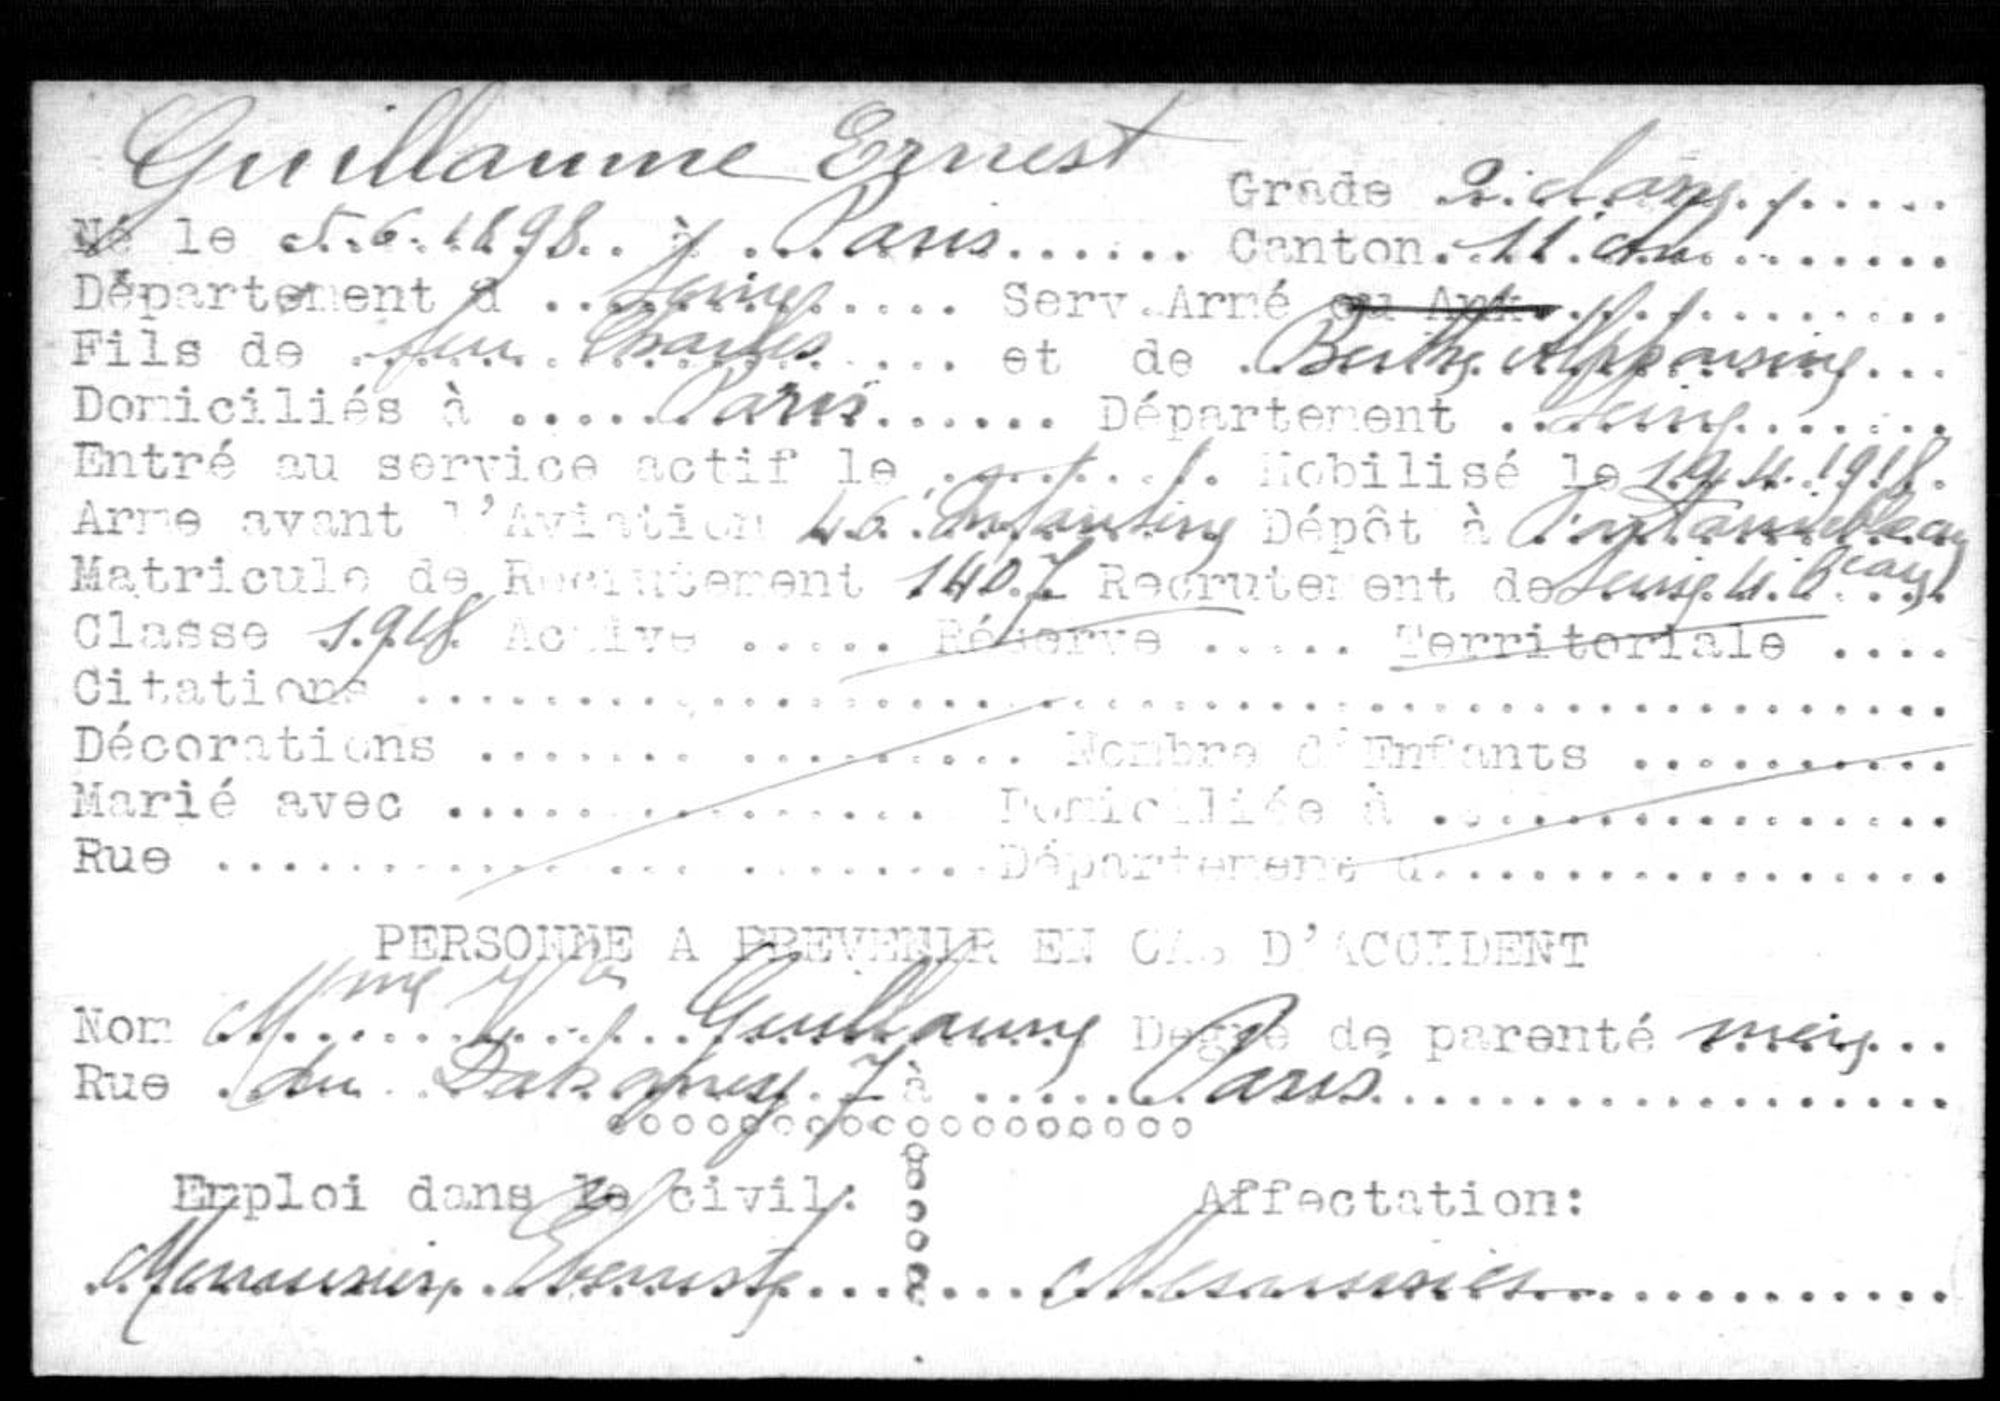 Guillaume Ernest
Grade 2. classe
Né le 5.6.1898 à Paris Canton 11. Arr
Département d Seine Serv.Armé ou Aux
Fils de feu Charles et de Berthe Alphonsine
Domiciliés à Paris Département Seine
Entré au service actif le Mobilisé le 19.4.1918
Arme avant l'Aviation 46. Infanterie Dépôt à Fontainebleau
Matricule de Recrutement 1407 Recrutement de Seine 4. B eau
Classe 1918 Active Réserve Territoriale
Citations
Décorations Nombre d'Enfants
Marié avec Domiciliée à
Rue Département d
PERSONNE A PREVENIR EN CAS D'ACCIDENT
Nom Mme Vve Guillaume Degré de parenté mère
Rue du 7 à Paris
Emploi dans le civil: Affectation:
Menuisier Ebeniste Menuisier